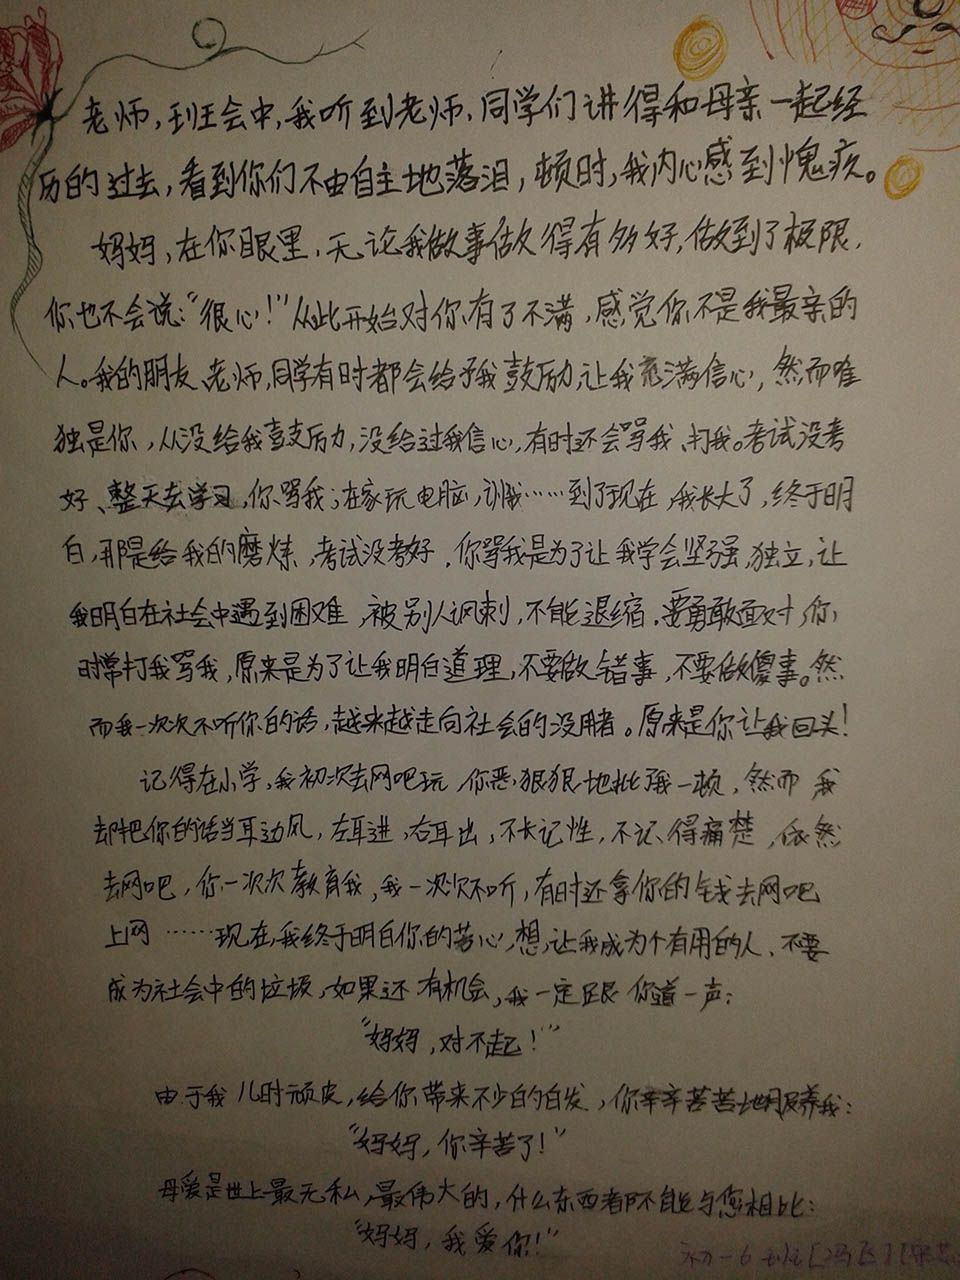 老师,班会中,我听到老师、同学们讲得和母亲一起经
历的过去,看到你们不由自主地落泪,顿时,我内心感到愧疚。
妈妈,在你眼里,无论我做事做得有多好,做到了极限,
你也不会说:“很心!”从此开始对你有了不满,感觉你不是我最亲的
人。我的朋友、老师,同学有时都会给予我鼓励,让我充满信心,然而唯
独是你,从没给我鼓励,没给过我信心,有时还会骂我、打我。考试没考
好、整天去学习,你骂我;在家玩电脑,训我……到了现在,我长大了,终于明
白,那是给我的磨炼,考试没考好,你骂我是为了让我学会坚强,独立,让
我明白在社会中遇到困难,被别人讽刺,不能退缩,要勇敢面对,你
时常打我骂我,原来是为了让我明白道理,不要做错事,不要做傻事。然
而我一次次不听你的话,越来越走向社会的没用者。原来是你让我回头!
记得在小学,我初次去网吧玩,你恶狠狠地批我一顿,然而我
却把你的话当耳边风,左耳进,右耳出,不长记性,不记得痛楚,依然
去网吧,你一次次教育我,我一次次不听,有时还拿你的钱去网吧
上网……现在,我终于明白你的苦心,想让我成为个有用的人,不要
成为社会中的垃圾,如果还有机会,我一定跟你道一声:
“妈妈,对不起!”
由于我儿时顽皮,给你带来不少的白发,你辛辛苦苦地服养我:
“妈妈,你辛苦了!”
母爱是世上最无私,最伟大的,什么东西都不能与您相比:
“妈妈,我爱你!”
初一6班